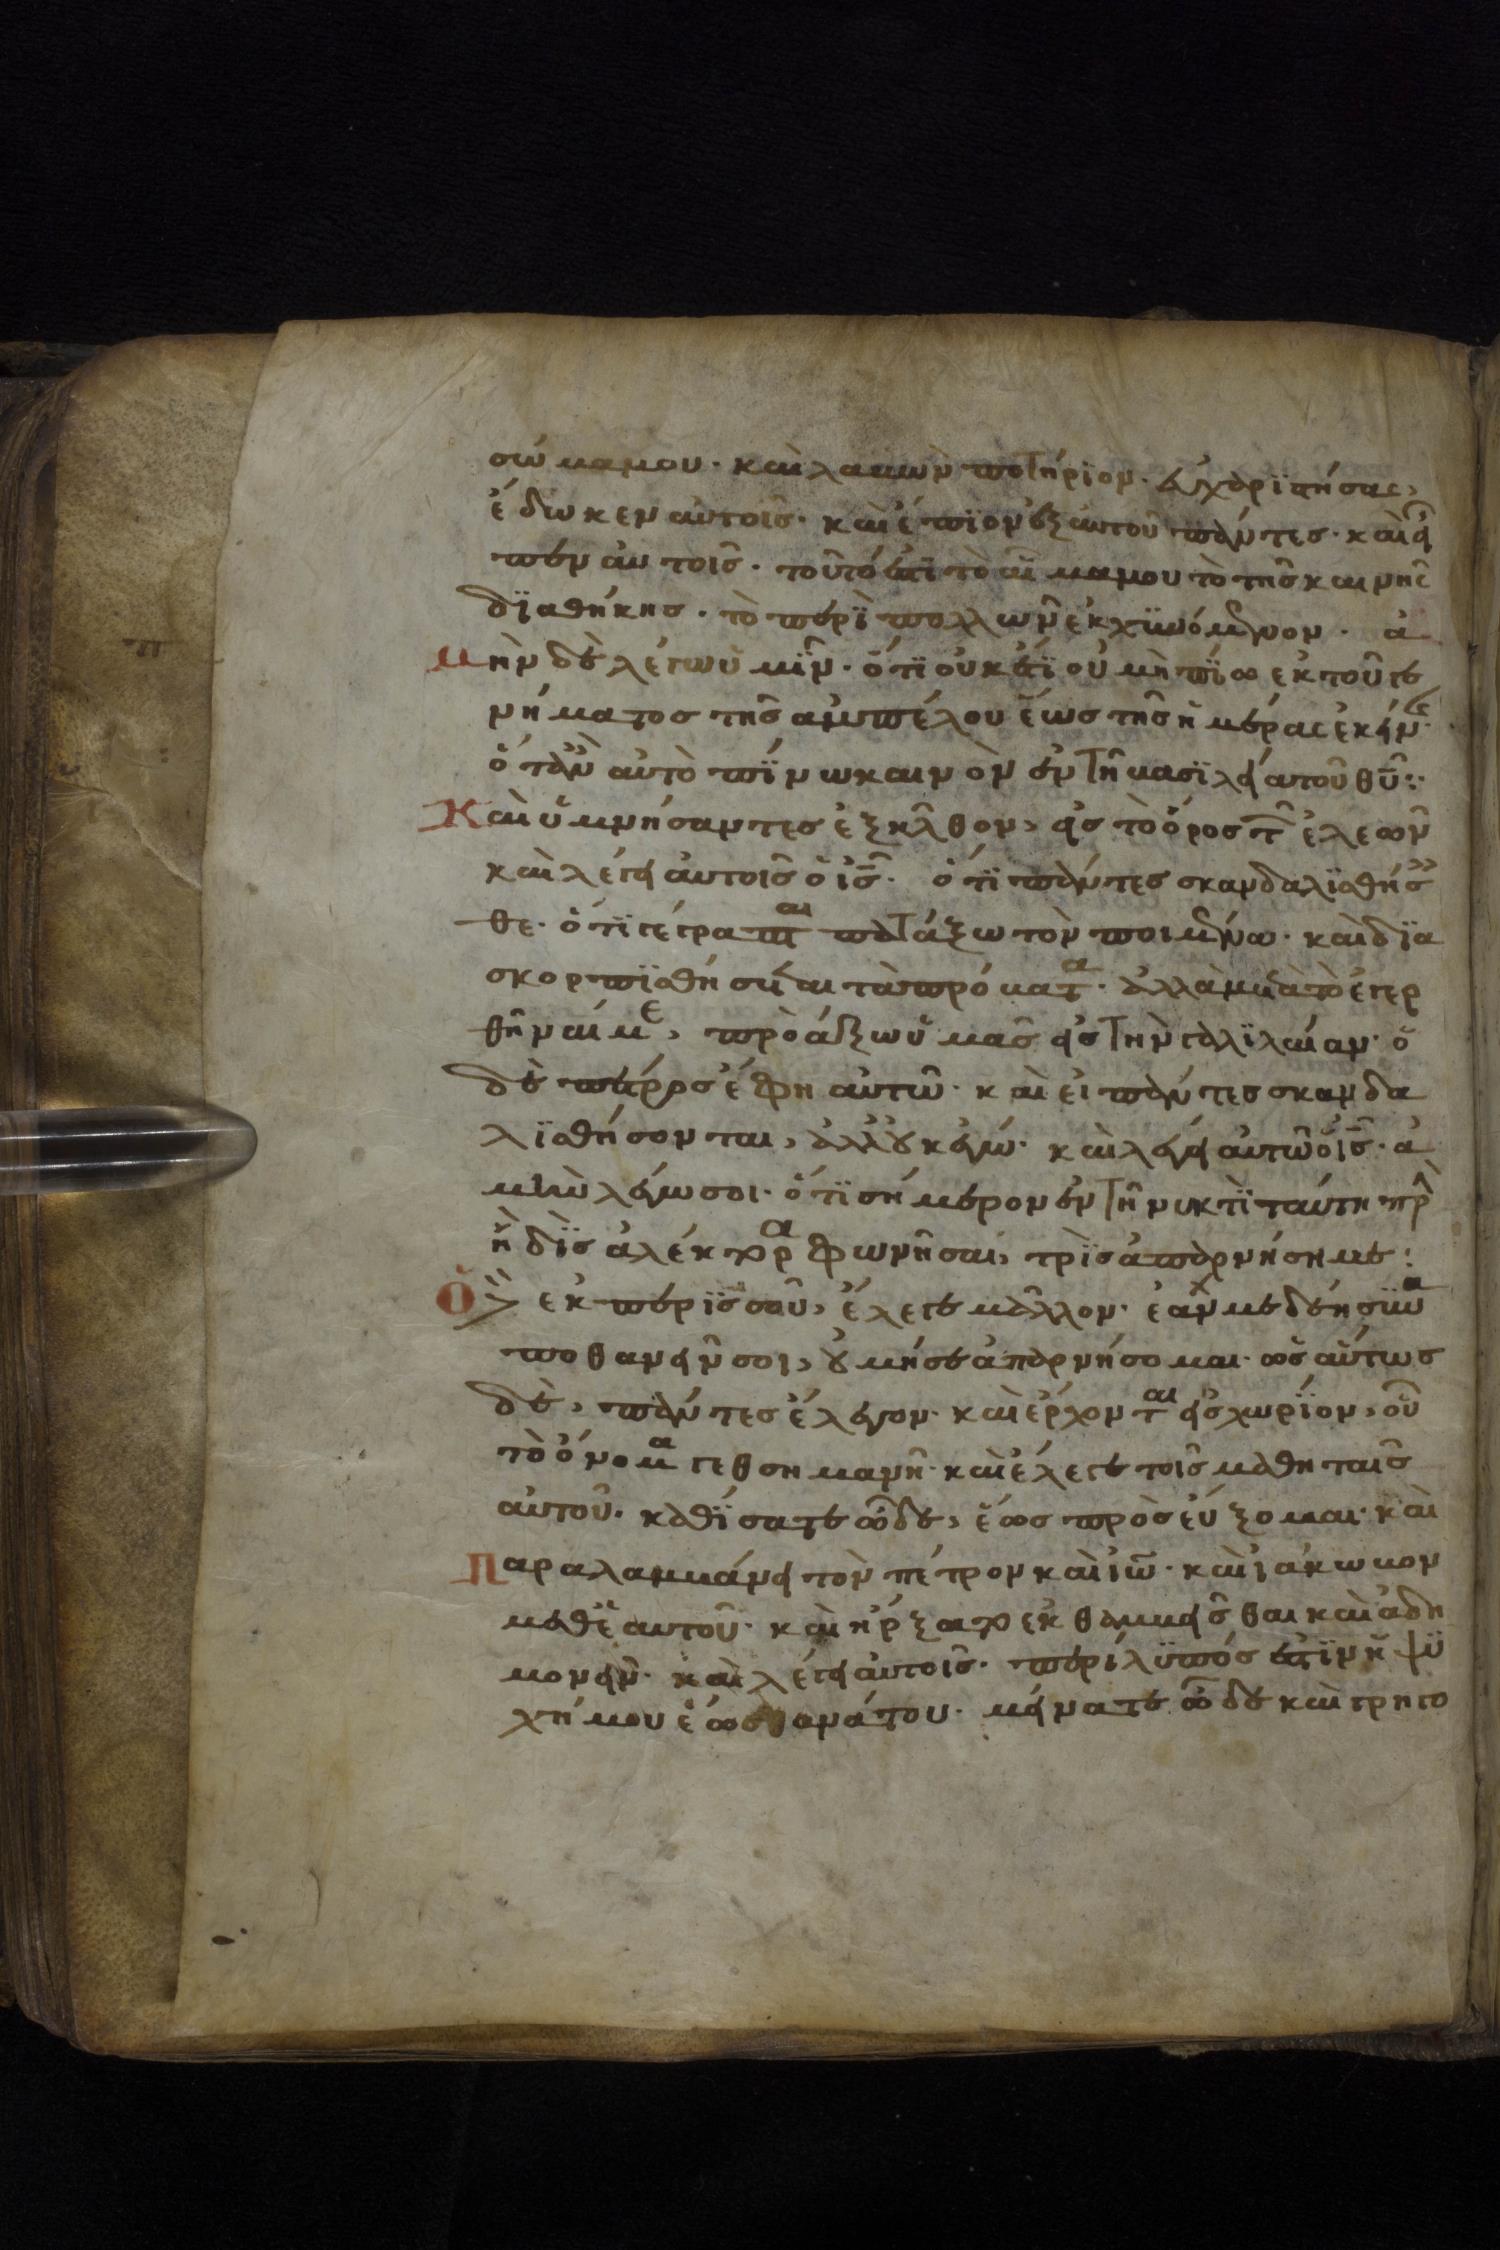 σῶμα μου· καὶ λαβὼν ποτήριον· εὐχαριστήσας,
ἔδωκεν αὐτοῖς· καὶ ἔπϊον ἐξ αὐτοῦ πάντες· καὶ εἶ
πεν αὐτοῖς· τοῦτό ἐστϊ τὸ αἷμα μου τὸ τῆς καινῆς
δϊαθήκης· τὸ περὶ πολλῶν ἐκχϋνόμενον· ἀ
μὴν δὲ λέγω ὑμῖν· ὅτϊ οὐκέτϊ οὐ μὴ πΐω ἐκ τοῦ γε
νήματος τῆς ἀμπέλου ἕως τῆς ἡμέρας ἐκείν
ὅταν αὐτὸ πΐνω καινὸν ἐν τῆ βασϊλεία τοῦ θῦ:
Καὶ ὑμνήσαντες ἐξῆλθον, εἰς τὸ ὄρος τ ἐλεῶν
καὶ λέγει αὐτοῖς ὁ ἰς· ὅτϊ πάντες σκανδαλϊσθήσ
θε· ὅτϊ γέγραπται πατάξω τὸν ποιμένα· καὶ δϊα
σκορπϊσθήσεται τὰ πρόβατα· ἀλλὰ μετὰ τὸ ἐγερ
θῆναί με, προάξω ὑμᾶς εἰς τὴν γαλϊλαίαν· ὁ
δὲ πέτρος ἔφη αὐτῶ· καὶ εἰ πάντες σκανδα
λϊσθήσονται, ἀλλ' οὐκ ἐγώ· καὶ λέγει αὐτῶ ὁ ἰς· ἀ
μὴν λέγω σοι· ὅτϊ σήμερον ἐν τῆ νυκτὶ ταύτη πρὶ
ἢ δὶς ἀλέκτορα φωνῆσαι, τρὶς ἀπαρνήση με:
Ὁ δὲ ἐκ περϊσσοῦ, ἔλεγε μᾶλλον· ἐάν με δέη σϋνα
ποθανεῖν σοι, οὐ μή σε ἀπαρνήσομαι· ὡσαύτως
δὲ, πάντες ἔλεγον· καὶ ἔρχονται εἰς χωρΐον, οὗ
τὸ ὄνομα γεθσημανῆ· καὶ ἔλεγε τοῖς μαθηταῖς
αὐτοῦ· καθΐσατε ὧδε, ἕως προσεύξομαι· καὶ
Παραλαμβάνει τὸν πέτρον καὶ ἰω· καὶ ἰάκωβον
μεθ' ἑαυτοῦ· καὶ ἤρξατο ἐκθαμβεῖσθαι καὶ ἀδη
μονεῖν· καὶ λέγει αὐτοῖς· περίλϋπός ἐστϊν ἡ ψϋ
χή μου ἕως θανάτου· μείνατε ὧδε καὶ γρηγο